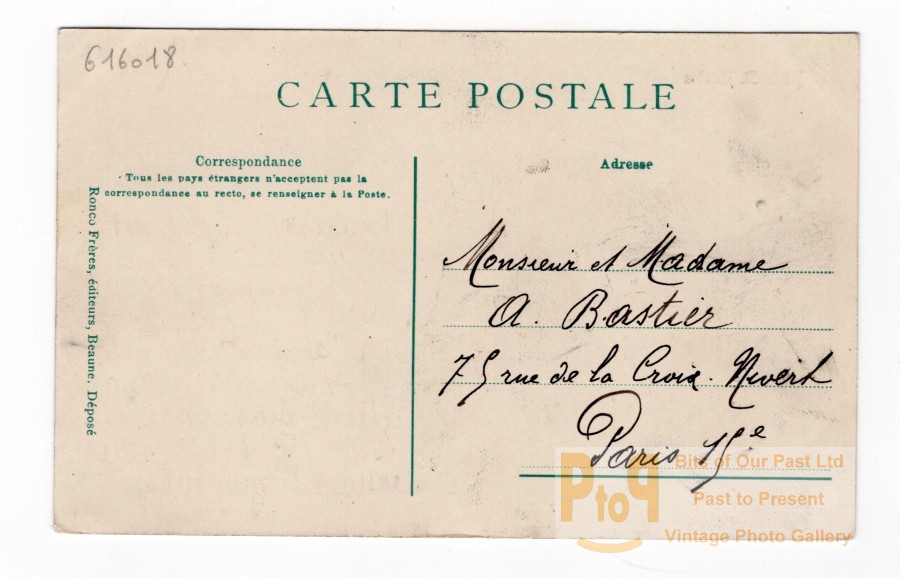 616018
CARTE POSTALE
Correspondance
Tous les pays étrangers n'acceptent pas la
correspondance au recto, se renseigner à la Poste.
Ronco Frères, éditeurs, Beaune. Déposé
Adresse
Monsieur et Madame
A. Bastier
75 rue de la Croix. Nivert
Paris 15e
PtoP
Bits of Our Past Ltd
Past to Present
Vintage Photo Gallery